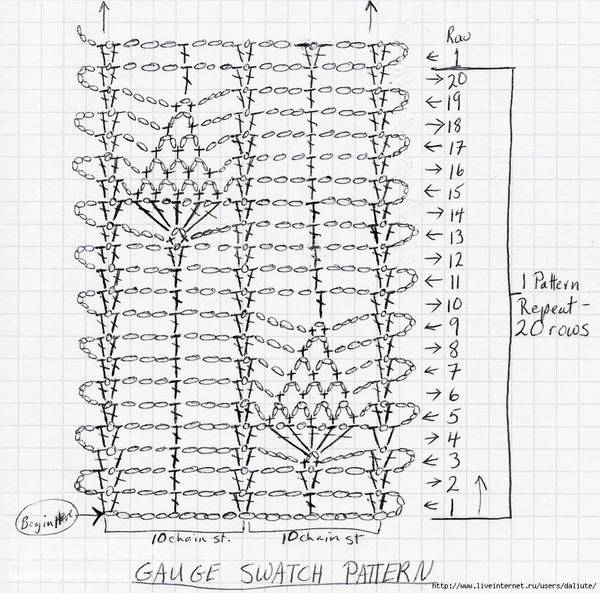 Row
← 1
→ 20
← 19
→ 18
← 17
→ 16
← 15
→ 14
← 13
→ 12
← 11
→ 10
← 9
→ 8
← 7
→ 6
← 5
→ 4
← 3
→ 2
← 1
1 Pattern
Repeat -
20 rows
Begin Here
10 chain st.
10 chain st
GAUGE SWATCH PATTERN
http://www.liveinternet.ru/users/daliute/